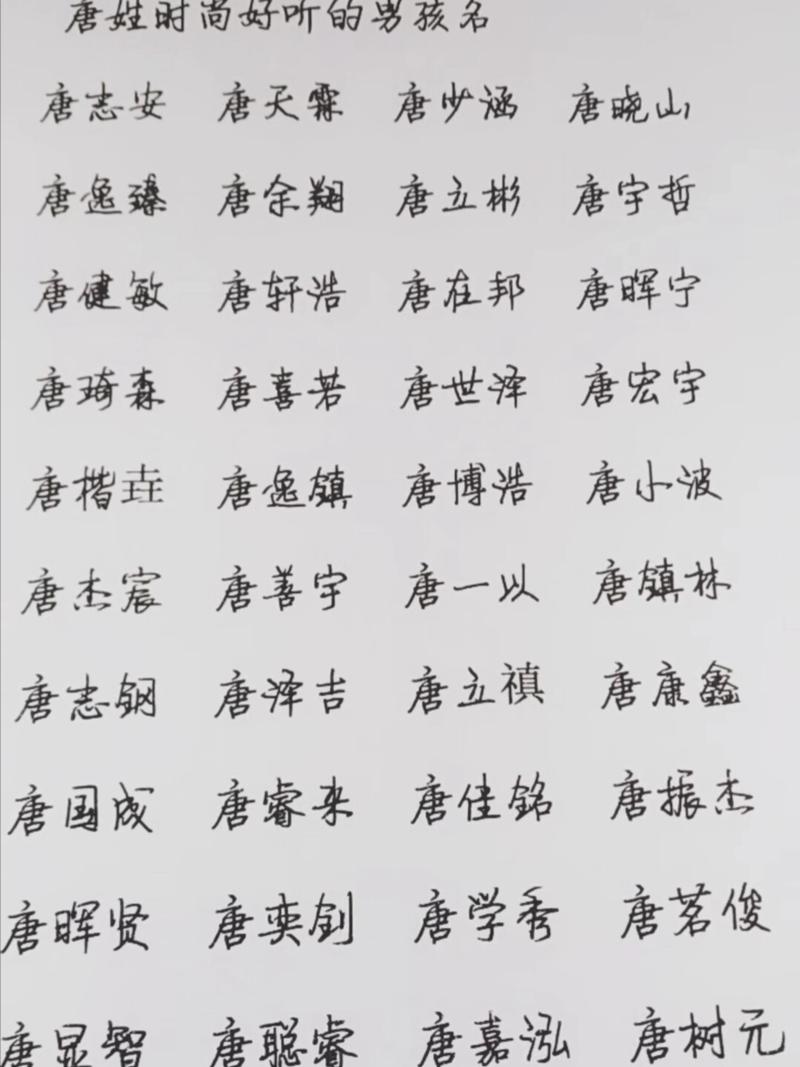 唐姓时尚好听的男孩名
唐志安 唐天霖 唐少涵 唐晓山
唐逸臻 唐余翔 唐立彬 唐宇哲
唐健敏 唐轩浩 唐在邦 唐晖宁
唐琦森 唐喜若 唐世泽 唐宏宇
唐楷垚 唐逸镇 唐博浩 唐小波
唐杰宸 唐善宇 唐一以 唐镇林
唐志钢 唐泽吉 唐立禛 唐康鑫
唐国成 唐睿来 唐佳铭 唐振杰
唐晖贤 唐奕剑 唐学秀 唐茗俊
唐显智 唐聪睿 唐嘉泓 唐树元